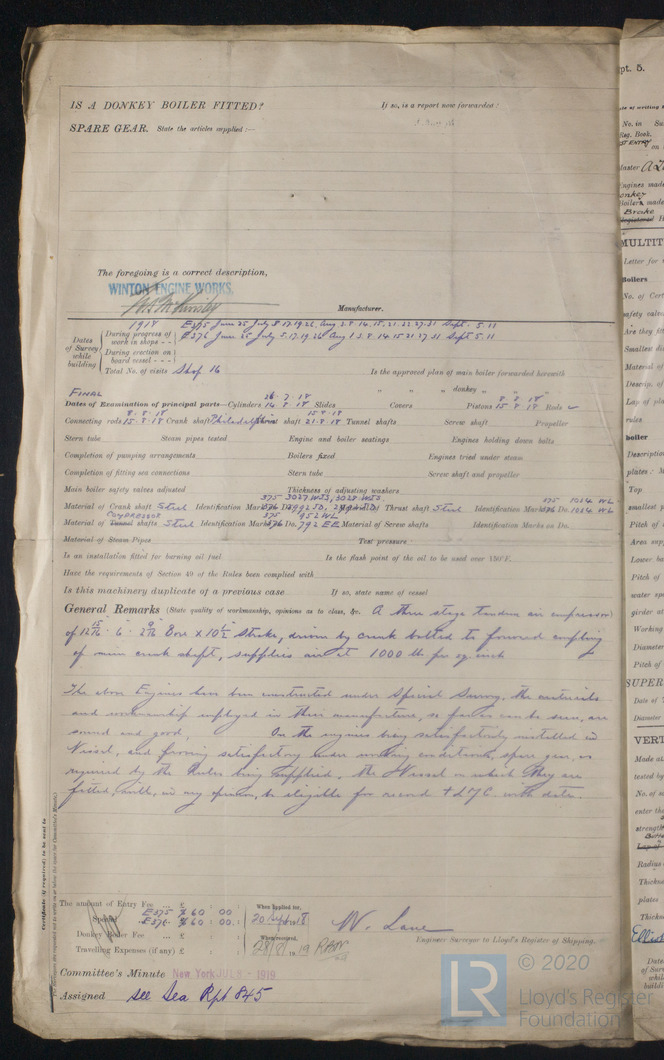 IS A DONKEY BOILER FITTED? If so, is a report now forwarded?
SPARE GEAR. State the articles supplied:—
The foregoing is a correct description,
WINTON ENGINE WORKS.
Manufacturer.
1918
Dates of Survey while building
During progress of work in shops - - E375 June 25 July 8.17.19.26. Aug 2.8.14.15.21.22.27.31 Sept. 5.11
E376 June 25 July 5.17.19.26 Aug 1.2.8.14.15.21.27.31 Sept 5.11
During erection on board vessel - - -
Total No. of visits Shop 16
Is the approved plan of main boiler forwarded herewith
" " " donkey " " "
FINAL
Dates of Examination of principal parts—Cylinders 26.7.18 14.8.18 Slides Covers Pistons 8.8.18 15.8.18 Rods
Connecting rods 8.8.18 15.8.18 Crank shaft Philadelphia Thrust shaft 15.8.18 21.8.18 Tunnel shafts Screw shaft Propeller
Stern tube Steam pipes tested Engine and boiler seatings Engines holding down bolts
Completion of pumping arrangements Boilers fixed Engines tried under steam
Completion of fitting sea connections Stern tube Screw shaft and propeller
Main boiler safety valves adjusted Thickness of adjusting washers
Material of Crank shaft Steel Identification Mark on Do. Thrust shaft Steel Identification Mark on Do. 375 1024 WL 376 1026 WL
COMPRESSOR
Material of Tunnel shafts Steel Identification Marks on Do. 375 952 WL 376 792 EE Material of Screw shafts Identification Marks on Do.
Material of Steam Pipes Test pressure
Is an installation fitted for burning oil fuel Is the flash point of the oil to be used over 150°F.
Have the requirements of Section 49 of the Rules been complied with
Is this machinery duplicate of a previous case If so, state name of vessel
General Remarks (State quality of workmanship, opinions as to class, &c. A three stage tandem air compressor
of 12 15/16 - 6 - 2 9/16 Bore x 10½ Stroke, driven by crank bolted to forward coupling
of main crank shaft, supplies air at 1000 lb per sq inch
The above Engines have been constructed under Special Survey, the materials
and workmanship employed in their manufacture, so far as can be seen, are
sound and good. On the engines being satisfactorily installed in
Vessel, and proving satisfactory under working conditions, spare gear, as
required by the Rules being supplied, the Vessel in which they are
fitted, will, in my opinion, be eligible for record + LMC. with date.
Certificate (if required) to be sent to
The amount of Entry Fee ... £ : : When applied for,
Special E375 $60 00 : E376 $60 00 : 20 Sept 1918
Donkey Boiler Fee ... £ : : When received,
Travelling Expenses (if any) £ : : 1919
W. Lane
Engineer Surveyor to Lloyd's Register of Shipping.
Committee's Minute New York JUL 8 - 1919
Assigned See Sea Rpt 845
© 2020
LR
Lloyd's Register
Foundation
pt. 5.
MULTIT
Letter for
Boilers
No. of Cert
safety valve
Are they fit
Smallest di
Material of
Descrip. of
Lap of pla
rules
boiler
Description
plates: M
Top
smallest p
Pitch of
Area supp
Lower ba
Pitch of
water spa
girder at
Working
Diameter
Pitch of
SUPER
Date of
Diameter
VERT
Made at
tested by
No. of
enter the
strength
Radius
Thickne
plates
Thickne
Date
of Surv
while
buildi